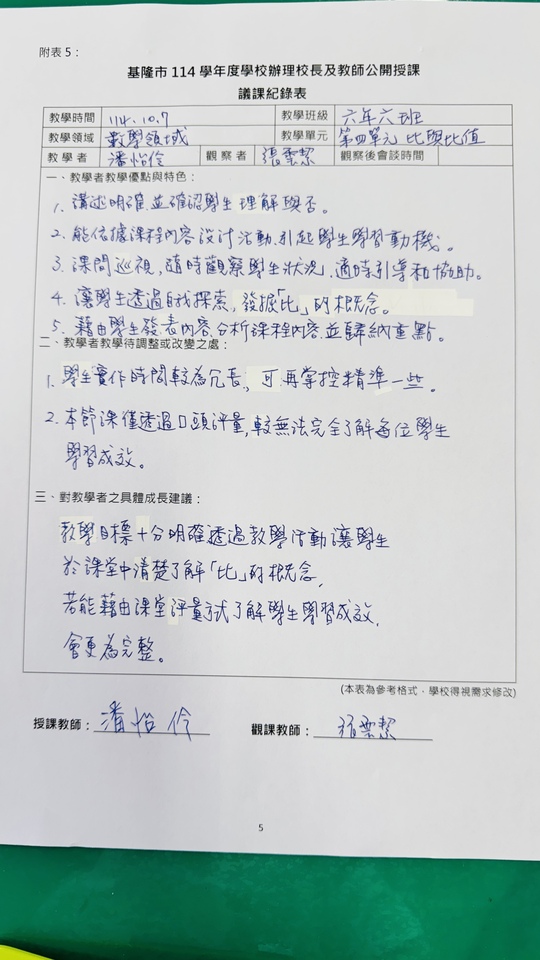 附表 5：
基隆市 114 學年度學校辦理校長及教師公開授課
議課紀錄表
教學時間 114.10.7 教學班級 六年六班
教學領域 數學領域 教學單元 第四單元 比與比值
教 學 者 潘怡伶 觀 察 者 張雲潔 觀察後會談時間
一、教學者教學優點與特色：
1. 講述明確並確認學生理解與否。
2. 能依據課程內容設計活動,引起學生學習動機。
3. 課間巡視，隨時觀察學生狀況、適時引導和協助。
4. 讓學生透過自我探索，發掘「比」的概念。
5. 藉由學生發表內容、分析課程內容、並歸納重點。
二、教學者教學待調整或改變之處：
1. 學生實作時間較為冗長，可再掌控精準一些。
2. 本節課僅透過口頭評量,較無法完全了解每位學生
學習成效。
三、對教學者之具體成長建議：
教學目標十分明確透過教學活動讓學生
於課堂中清楚了解「比」的概念，
若能藉由課堂評量試了解學生學習成效，
會更為完整。
(本表為參考格式，學校得視需求修改)
授課教師：潘怡伶 觀課教師：張雲潔
5